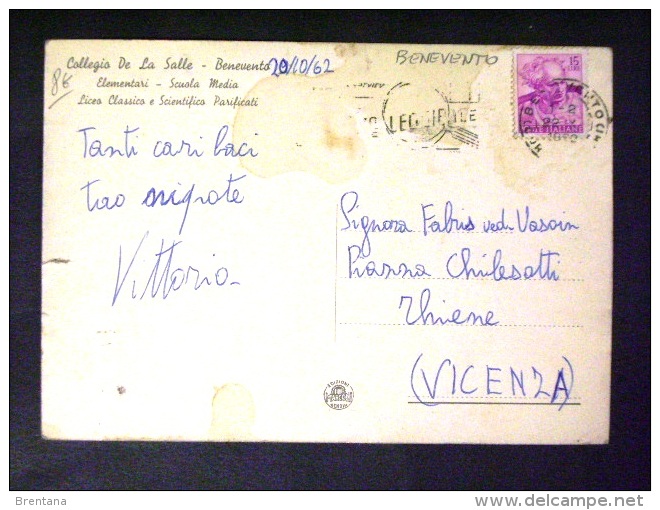 Collegio De La Salle - Benevento
Elementari - Scuola Media
Liceo Classico e Scientifico Parificati
20/10/62
8€
BENEVENTO
15
LEGGI
Tanti cari baci
tuo nipote
Vittorio
Signora Fabris ved. Vasoin
Piazza Chilesotti
Thiene
(VICENZA)
EDIZIONI
Brentana
delcampe.net